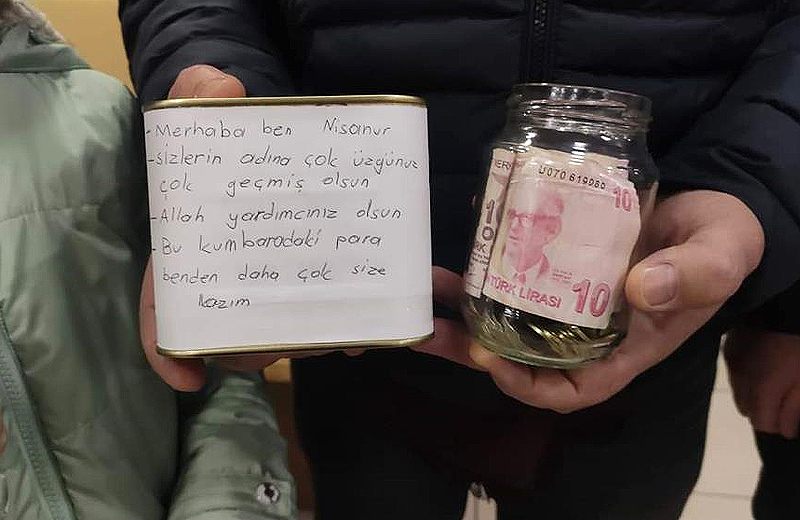 - Merhaba ben Nisanur
- sizlerin adına çok üzgünüz
çok geçmiş olsun
- Allah yardımcınız olsun
- Bu kumbaradaki para
benden daha çok size
lazım
U070 619969
10
TÜRK LİRASI 10